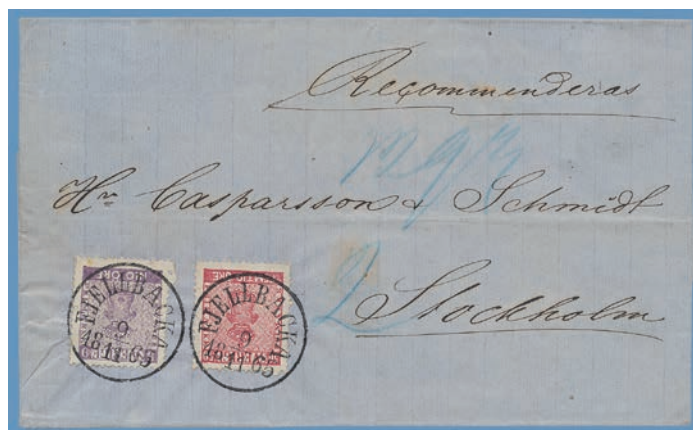 Recommenderas
Hr Casparsson & Schmidt
Stockholm
FJELLBACKA
9
18 11 65
FJELLBACKA
9
18 11 65